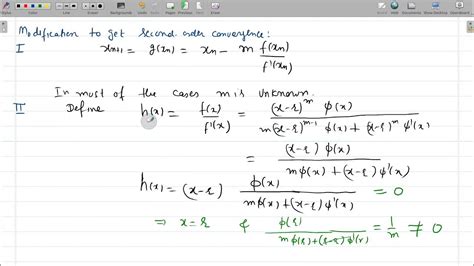 Modification to get second order convergence:
I x_{n+1} = g(x_n) = x_n - m f(x_n)/f'(x_n)
In most of the cases m is unknown.
II Define h(x) = f(x)/f'(x) = (x-r)^m φ(x) / (m(x-r)^{m-1} φ(x) + (x-r)^m φ'(x))
= (x-r) φ(x) / (mφ(x) + (x-r) φ'(x))
h(x) = (x-r) φ(x) / (mφ(x) + (x-r) φ'(x)) = 0
⇒ x = r & φ(r) / (mφ(r) + (r-r) φ'(r)) = 1/m ≠ 0